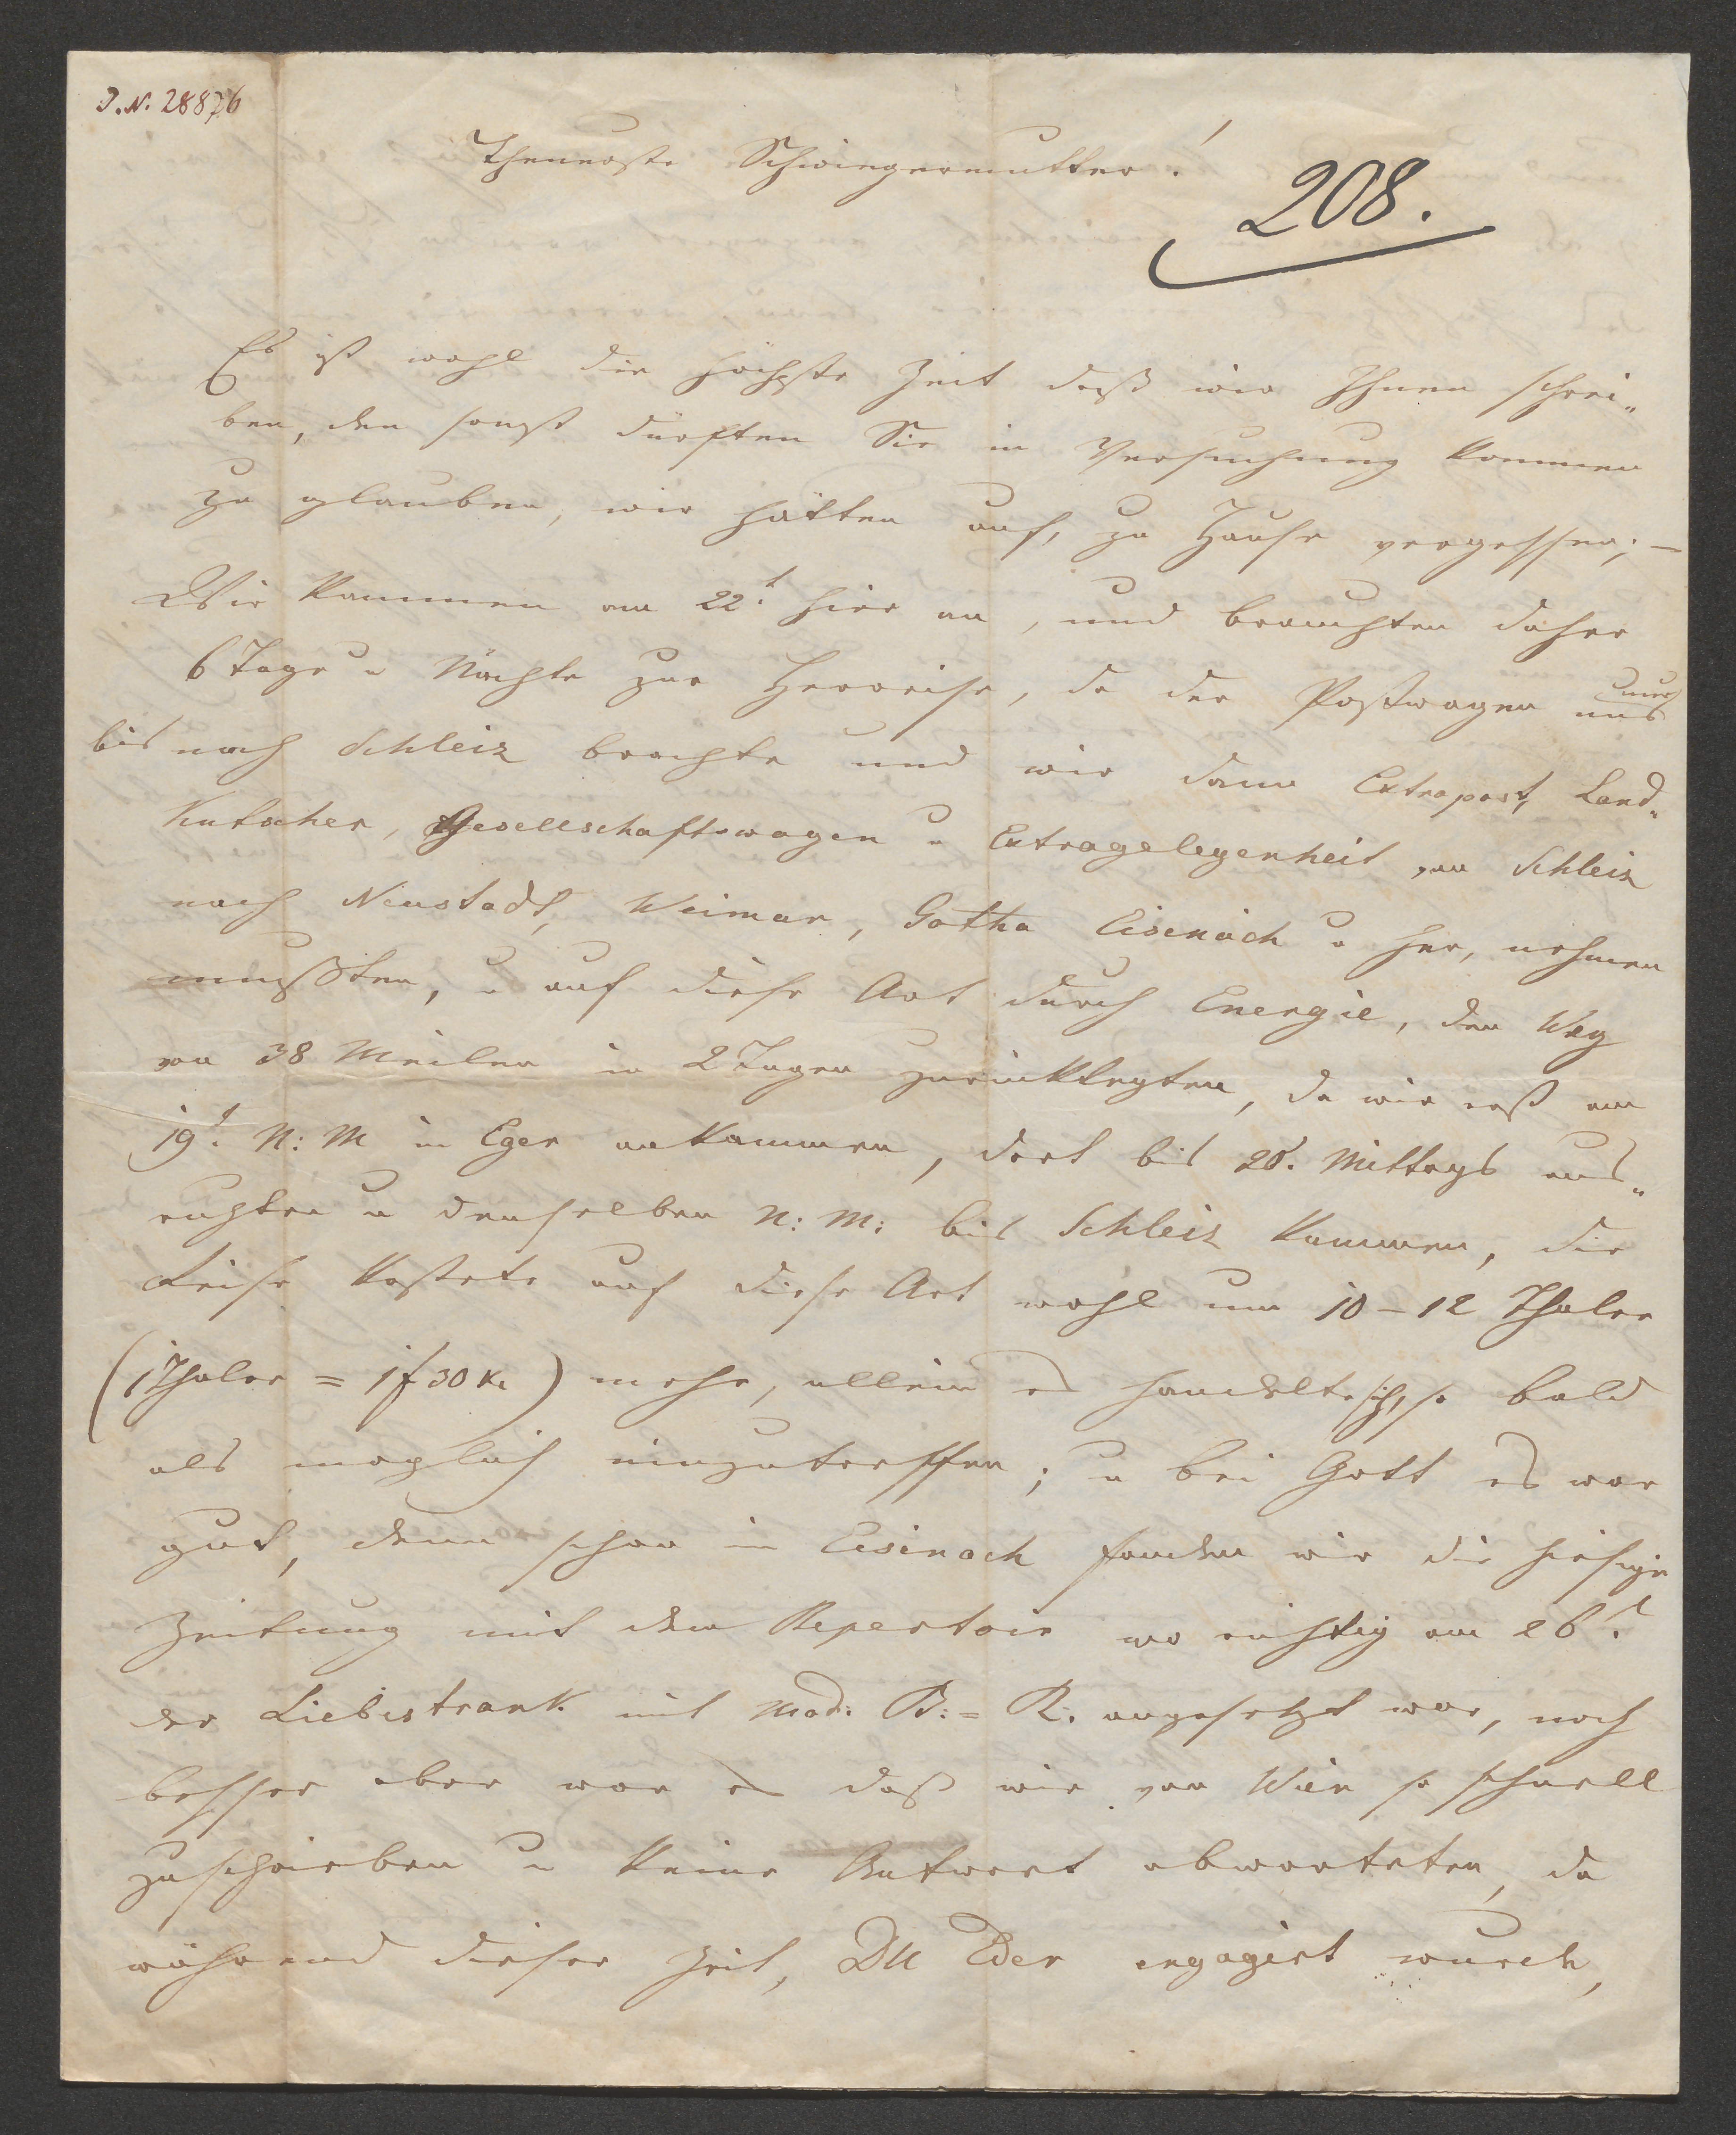 J. N. 28876
Theuerste Schwiegermutter!
208.
Es ist wohl die höchste Zeit daß wir Ihnen schrei„
ben, den sonst dürften Sie in Versuchung kommen
zu glauben, wir hätten auf, zu Hause vergessen; —
Wir kammen am 22t. hier an, und brauchten daher
6 Tage u Nächte zur Herreise, da der Postwagen uns nur
bis nach Schleiz brachte und wir dann Extrapost, Land„
Kutscher, Gesellschaftswagen u Extragelegenheit von Schleiz
nach Neustadt, Weimar, Gotha Eisenach u her, nehmen
mußten, u auf diese Art durch Energie, den Weg
von 38 Meilen in 2 Tagen zurücklegten, da wir erst am
19t. N: M in Eger ankammen, dort bis 20. Mittags aus„
ruhten u denselben N: M: bis Schleiz kammen, die
Reise kostete auf diese Art wohl um 10 – 12 Thaler
(1 Thaler = 1 f 30 Kr) mehr, allein es handelte sich, so bald
als moglich einzutreffen; u bei Gott es war
gut, denn schon in Eisenach fanden wir die hiesige
Zeitung mit dem Repertoir wo richtig am 26t.
der Liebestrank mit Mad: B: = R: angesetzt war, noch
besser aber war es daß wir von Wien so schnell
zuschrieben u keine Antwort abwarteten, da
während dieser Zeit, Dll Eder engagirt wurde,